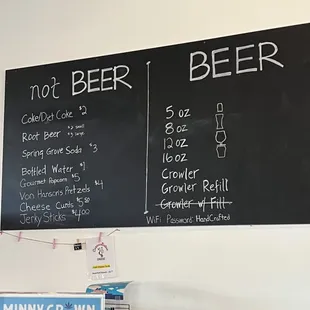 not BEER
Coke/Diet Coke $2
Root Beer
Spring Grove Soda $3
Bottled Water $1
Gourmet Popcorn $5
Von Hansons Pretzels $4
Cheese Curds
Jerky Sticks
BEER
5 oz
8 oz
12 oz
16 oz
Crowler
Growler Refill
Growler w/ Fill
WiFi Password: HandCrafted
MINNY GROWN